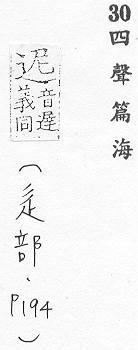 30 四聲篇海
迡音遲義同
(辵部.P194)